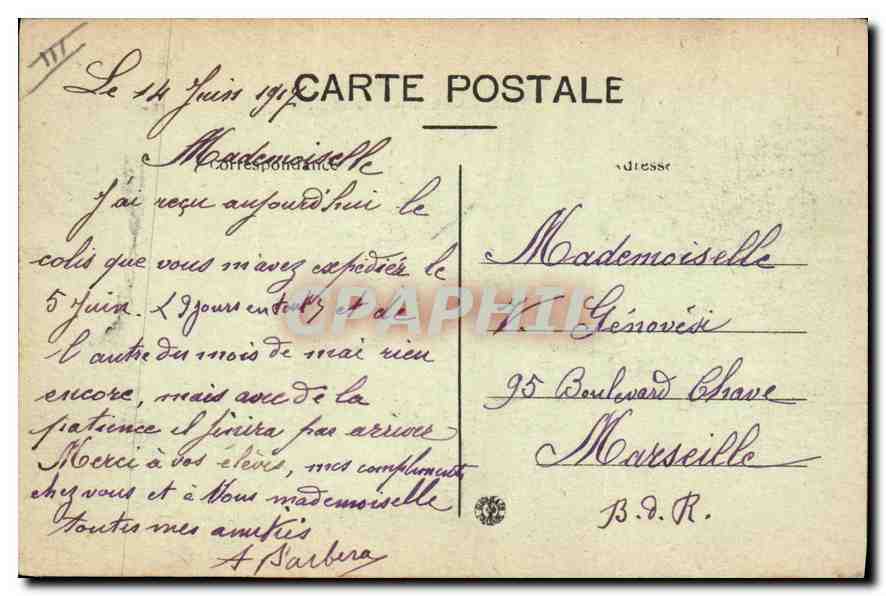 III
Le 14 Juin 1917
CARTE POSTALE
Correspondance
Mademoiselle
J'ai reçu aujourd'hui le
colis que vous m'avez expédiér le
5 Juin. (9 jours en tout) et de
l'autre du mois de mai rien
encore, mais avec de la
patience il finira par arriver
Merci à vos élèves, mes compliments
chez vous et à Vous mademoiselle
toutes mes amitiés
A Barbera
Adresse
Mademoiselle
V. Génovési
95 Boulevard Chave
Marseille
B.d.R.
CPAPHIL